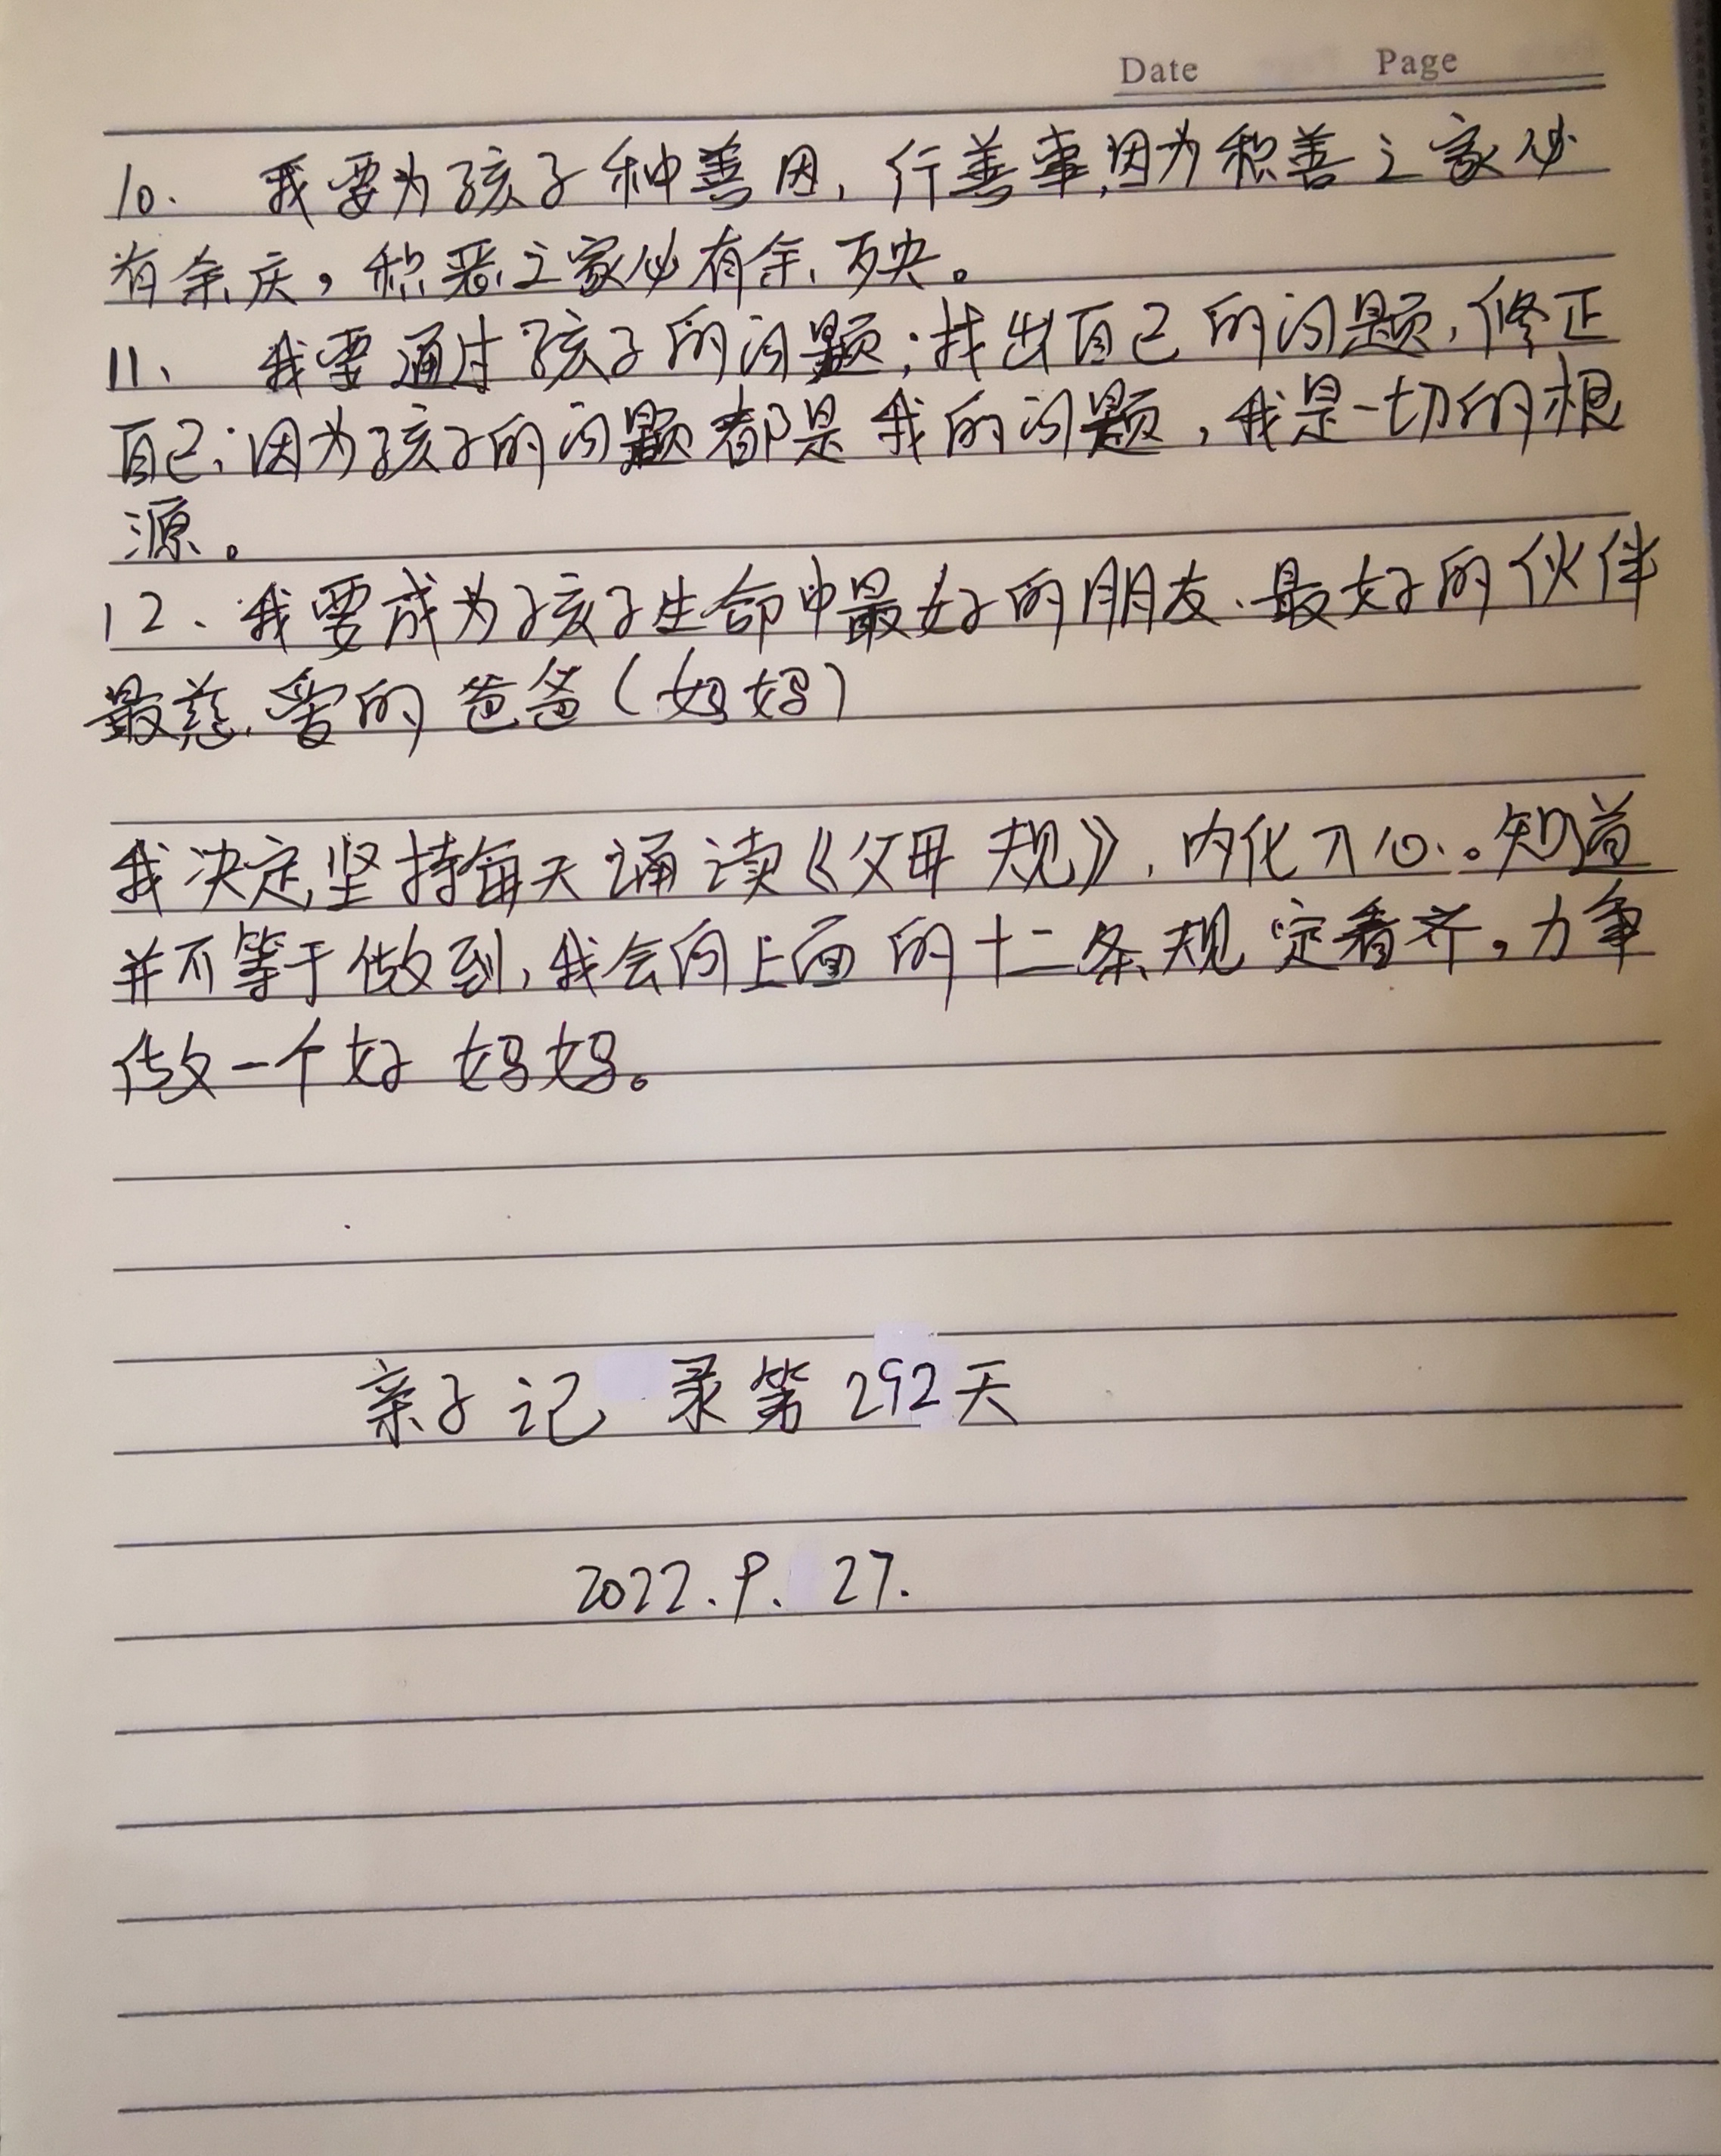 Date Page
10. 我要为孩子种善因,行善事,因为积善之家必
有余庆,积恶之家必有余殃。
11、我要通过孩子的问题;找出自己的问题,修正
自己;因为孩子的问题都是我的问题,我是一切的根
源。
12、我要成为孩子生命中最好的朋友、最好的伙伴
最慈爱的爸爸(妈妈)
我决定坚持每天诵读《父母规》,内化入心。知道
并不等于做到,我会向上面的十二条规定看齐,力争
做一个好妈妈。
亲子记录第292天
2022.9.27.